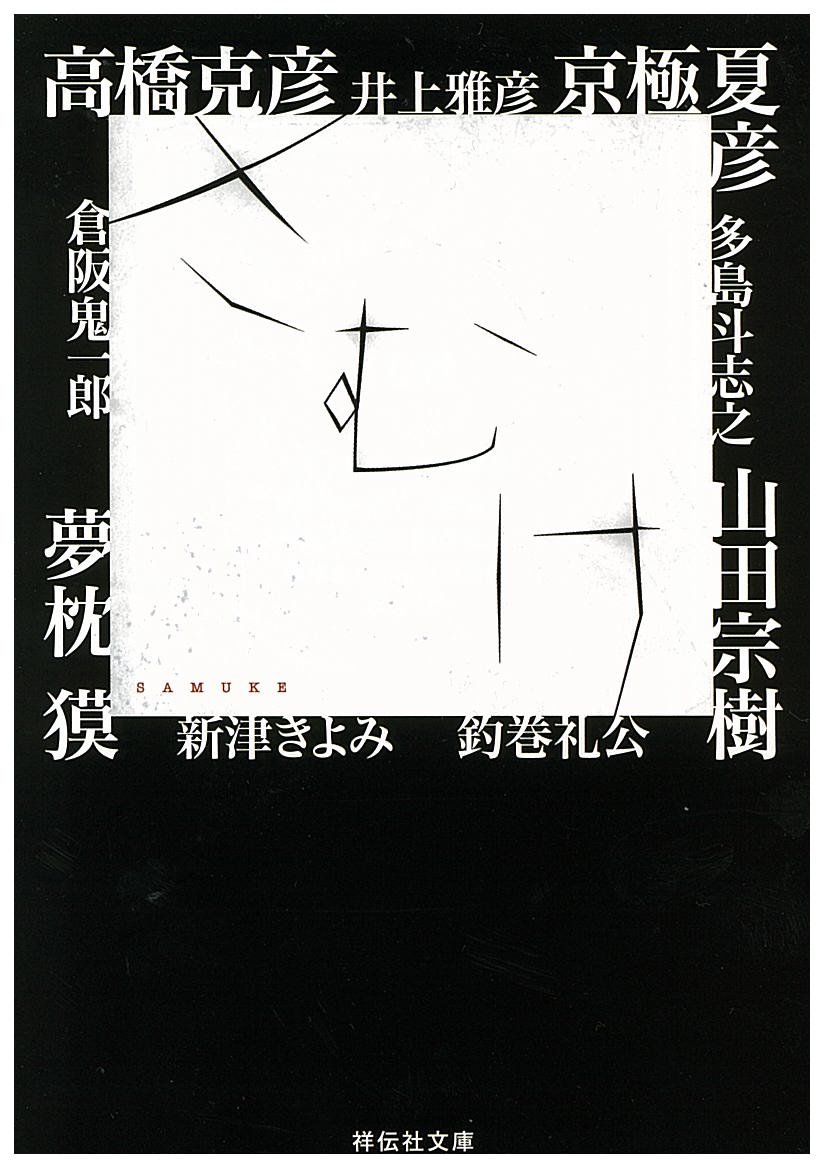 高橋克彦
井上雅彦
京極夏彦
多島斗志之
山田宗樹
倉阪鬼一郎
夢枕獏
さむけ
SAMUKE
新津きよみ
釣巻礼公
祥伝社文庫